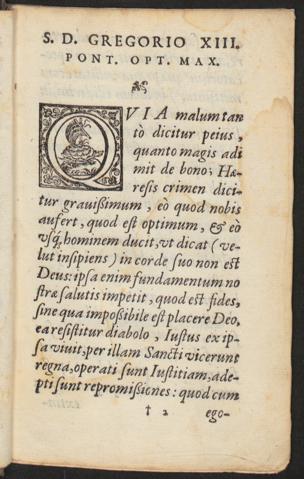 S. D. GREGORIO XIII.
PONT. OPT. MAX.
QVIA malum tan
tò dicitur peius,
quanto magis adi
mit de bono; Hæ
resis crimen dici-
tur grauißimum, eò quod nobis
aufert, quod est optimum, & eò
vsq́; hominem ducit, vt dicat (ve-
lut insipiens) in corde suo non est
Deus: ipsa enim fundamentum no
stræ salutis impetit, quod est fides,
sine qua impoßibile est placere Deo,
ea resistitur diabolo, Iustus ex ip-
sa viuit, per illam Sancti vicerunt
regna, operati sunt Iustitiam, ade-
pti sunt repromißiones: quod cum
† 2 ego-